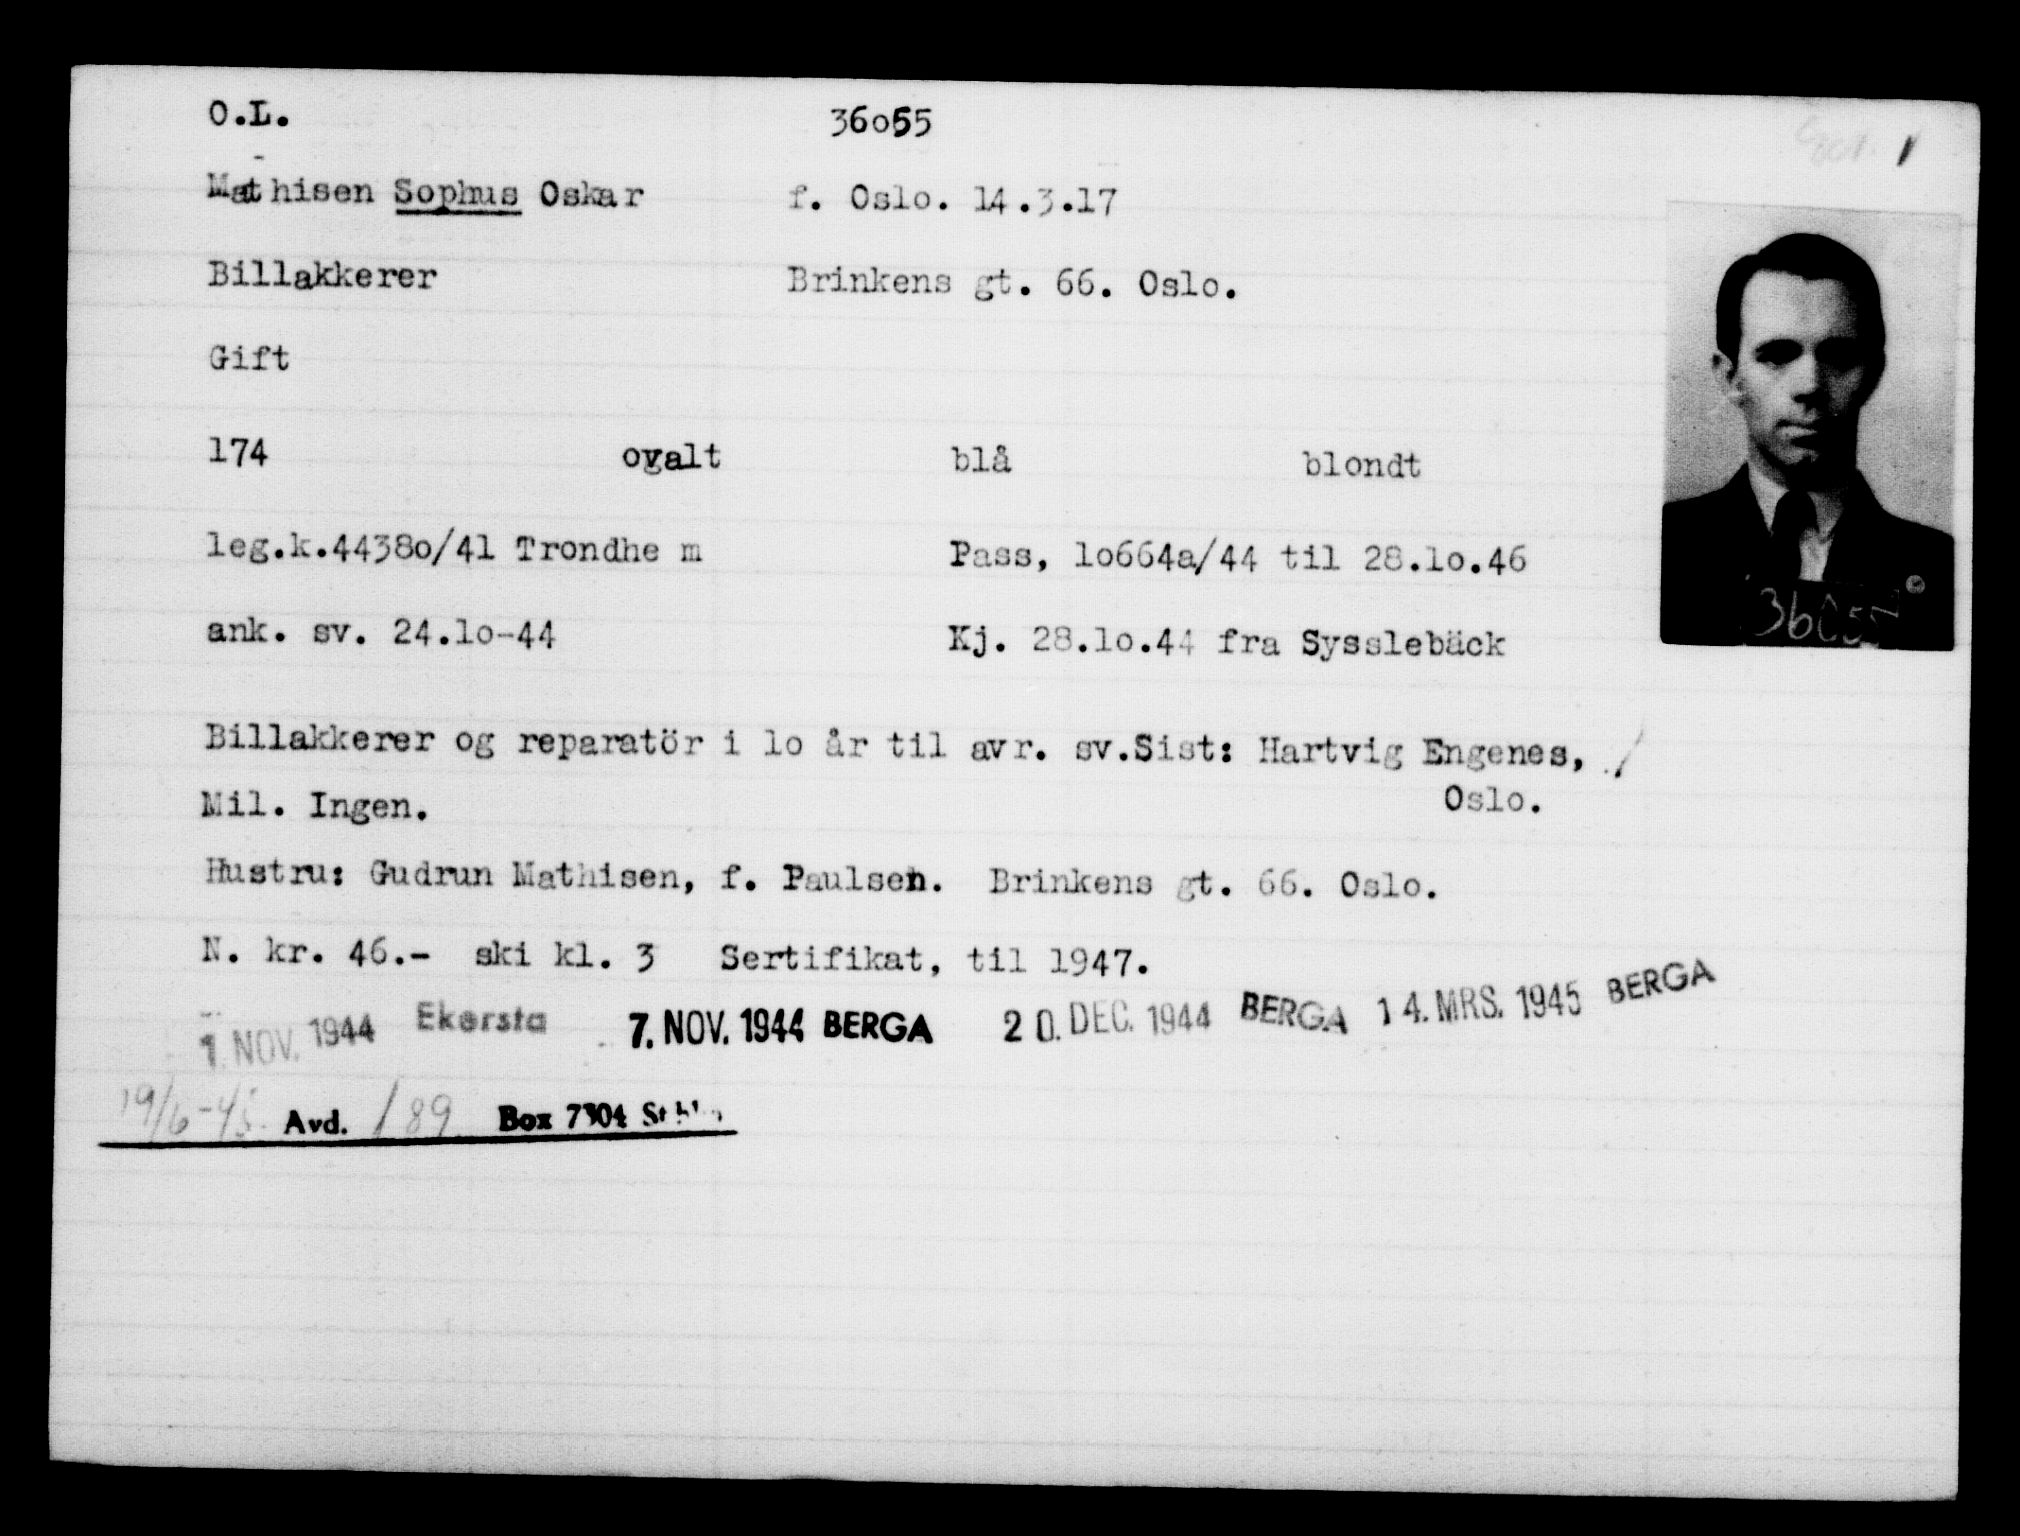 O.L. 36o55
Mathisen Sophus Oskar f. Oslo. 14.3.17
Billakkerer Brinkens gt. 66. Oslo.
Gift
174 ovalt blå blondt
36055
leg.k.4438o/41 Trondhe m Pass, lo664a/44 til 28.lo.46
ank. sv. 24.lo-44 Kj. 28.lo.44 fra Sysslebäck
Billakkerer og reparatör i lo år til avr. sv.Sist: Hartvig Engenes, ./
Oslo.
Mil. Ingen.
Hustru: Gudrun Mathisen, f. Paulsen. Brinkens gt. 66. Oslo.
N. kr. 46.- ski kl. 3 Sertifikat, til 1947.
1. NOV. 1944 Ekersta 7. NOV. 1944 BERGA 20. DEC. 1944 BERGA 14. MRS. 1945 BERGA
19/6-45. Avd. 189 Box 7304